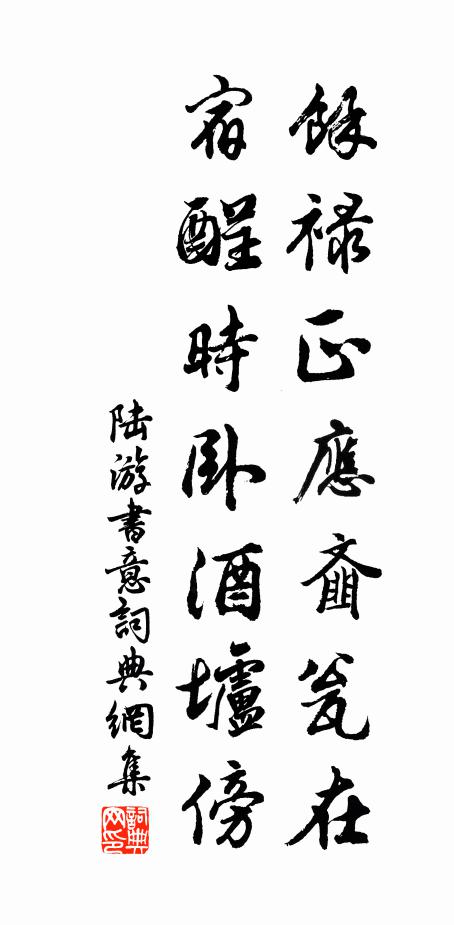 餘祿正應齏瓮在
宿酲時臥酒壚傍
陸游書意詞典網集
詞典网印